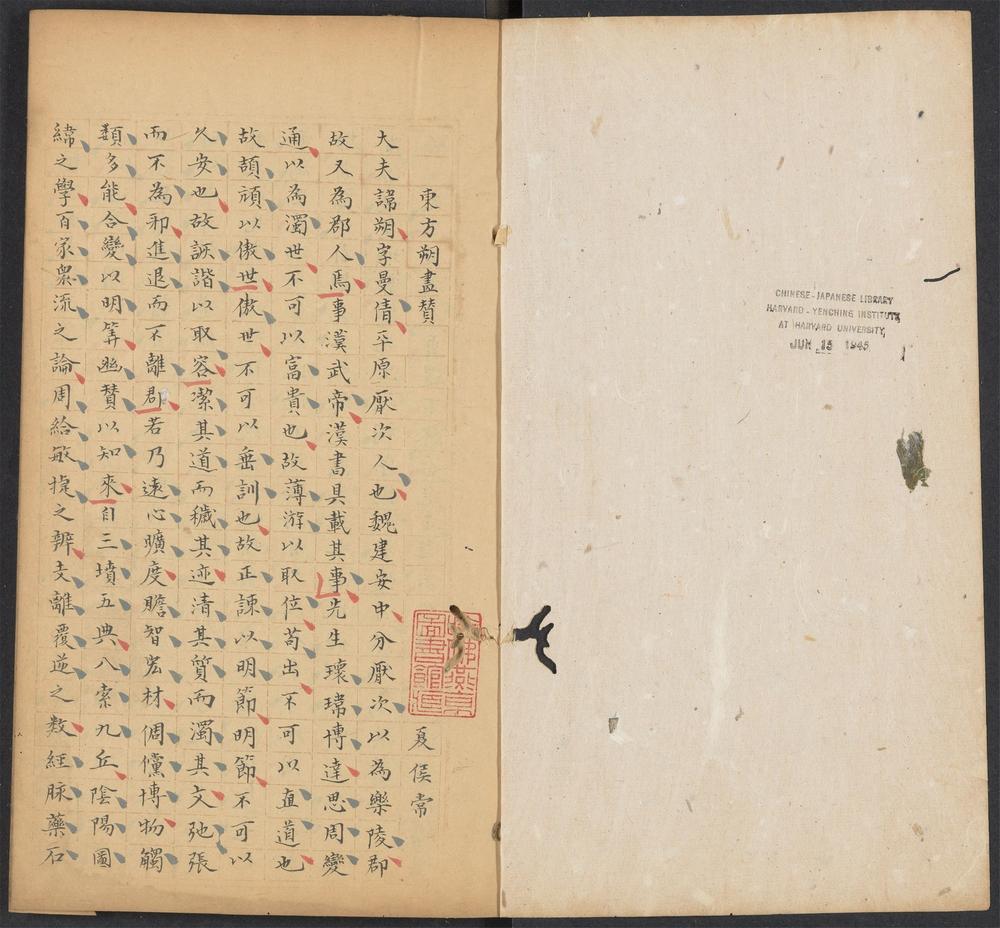 CHINESE-JAPANESE LIBRARY
HARVARD-YENCHING INSTITUTE
AT HARVARD UNIVERSITY
JUN 15 1945
東方朔畫贊
夏侯常
大夫諱朔字曼倩平原厭次人也魏建安中分厭次以為樂陵郡
故又為郡人焉事漢武帝漢書具載其事先生瓌瑋博達思周變
通以為濁世不可以富貴也故薄游以取位苟出不可以直道也
故頡頏以傲世傲世不可以垂訓也故正諫以明節明節不可以
久安也故詼諧以取容潔其道而穢其迹清其質而濁其文弛張
而不為邪進退而不離群若乃遠心曠度贍智宏材倜儻博物觸
類多能合變以明筭幽贊以知來自三墳五典八索九丘陰陽圖
緯之學百家衆流之論周給敏捷之辨支離覆逆之数經脉藥石